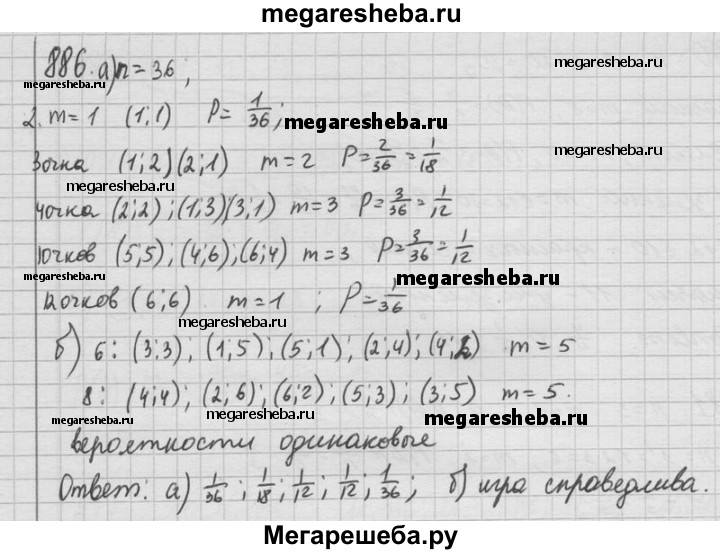 megaresheba.ru
886. а) n = 36;
megaresheba.ru
megaresheba.ru
2. m = 1 (1;1) P = 1/36;
megaresheba.ru
3 очка (1;2)(2;1) m = 2 P = 2/36 = 1/18
megaresheba.ru
4 очка (2;2);(1;3)(3;1) m = 3 P = 3/36 = 1/12
10 очков (5;5);(4;6);(6;4) m = 3 P = 3/36 = 1/12
megaresheba.ru
12 очков (6;6) m = 1 ; P = 1/36
megaresheba.ru
б) 6: (3;3); (1;5); (5;1); (2;4); (4;2) m = 5
8: (4;4); (2;6); (6;2); (5;3); (3;5) m = 5.
megaresheba.ru
megaresheba.ru
megaresheba.ru
вероятности одинаковые
Ответ: а) 1/36; 1/18; 1/12; 1/12; 1/36; б) игра справедлива.
Мегарешеба.ру